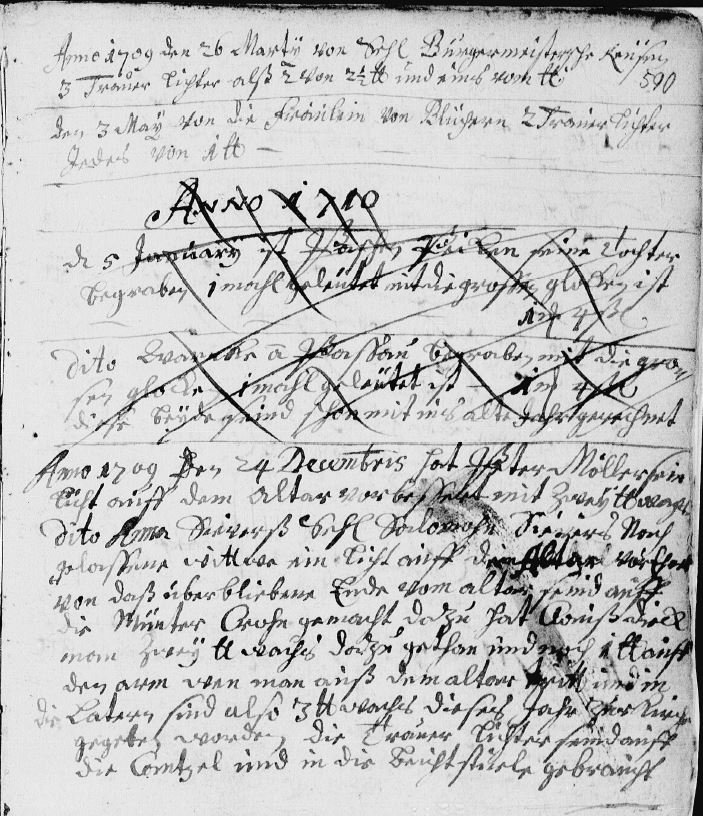 Anno 1709 den 26 Marty von Sehl Bürgermeistersche
3 Trauer lichter alß 2 von 2½ ℔ und eins von ℔ 590
den 3 May von die Fräulein von Blüchern 2 Trauer lichter
Jedes von 1 ℔ –
Anno 1710
d 5 January ist seine tochter
begraben 1 mahl geleutet mit die grossen glocken ist
1 4
Dito a Passau begraben mit die gros
sen glocke 1 mahl geleütet ist – 1 4
diese beyde seind schon mit ins alte Jahr gerechnet
Anno 1709 Den 24 Decembris hat Peter Möller sein
licht auff dem altar verbessert mit zwey ℔ wachs
Dito Anna Sieverß Sehl Salomohn Sievers Nach
gelassene wittwe ein licht auff den Altar
von daß überbliebene Ende vom altar seind auff
die Münter Crohn gemacht dazu hat Clauß Dieck
man zwey ℔ wachs dazu gethan und noch 1 ℔ auff
den arm wen man auß dem altar tritt und in
die Latern sind also 3 ℔ wachs dieses Jahr zur Kirche
gegeben worden, die Trauer lichter seind auff
die Cantzel und in die beicht stüele gebraucht